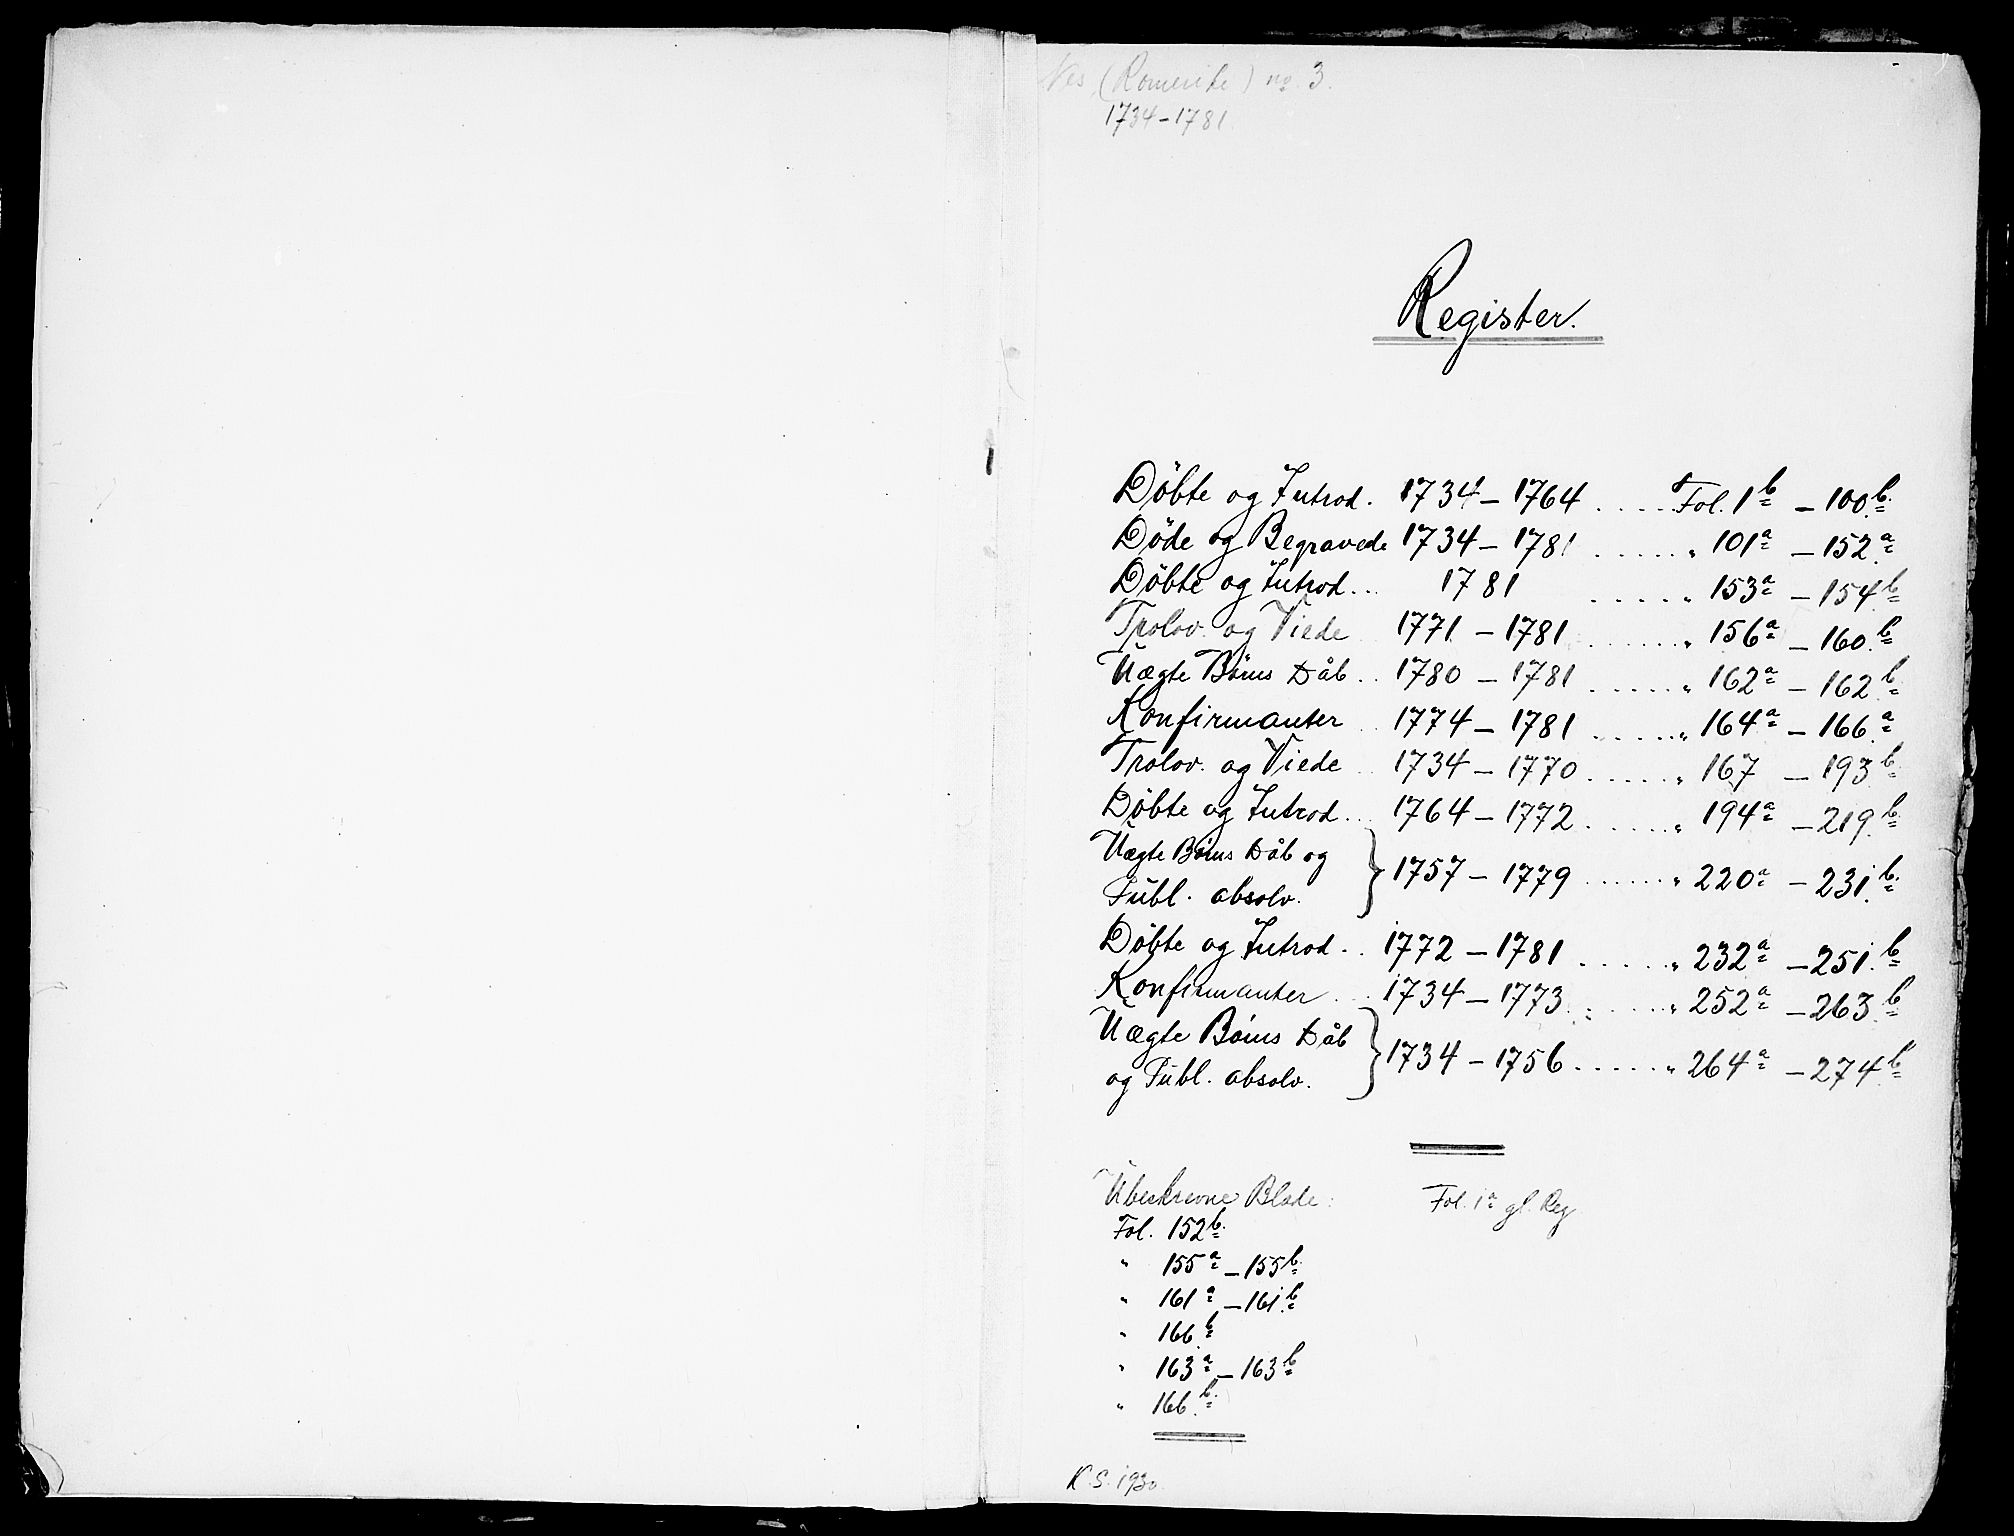 Nes (Romerike) no. 3.
1734-1781.
Register.
Döbte og Introd. 1734 - 1764 ..... Fol. 1b - 100b.
Döde og Begravede 1734 - 1781 ...... " 101a - 152a.
Döbte og Introd... 1781 ...... " 153a - 154b.
Trolov. og Viede 1771 - 1781 ....... " 156a - 160b.
Uægte Börns Dåb .. 1780 - 1781 ...... " 162a - 162b.
Konfirmanter .. 1774 - 1781 ...... " 164a - 166a.
Trolov. og Viede .. 1734 - 1770 ...... " 167 - 193b.
Döbte og Introd... 1764 - 1772 ...... " 194a - 219b.
Uægte Börns Dåb og
Publ. absolv. } 1757 - 1779 ...... " 220a - 231b.
Döbte og Introd. . 1772 - 1781 ...... " 232a - 251b.
Konfirmanter ... 1734 - 1773 ...... " 252a - 263b.
Uægte Börns Dåb
og Publ. absolv. } 1734 - 1756 ...... " 264a - 274b.
Ubeskrevne Blade: Fol. 1a gl. Reg
Fol. 152b.
" 155a - 155b.
" 161a - 161b.
" 166b.
" 163a - 163b.
" 166b.
K.S. 1930.